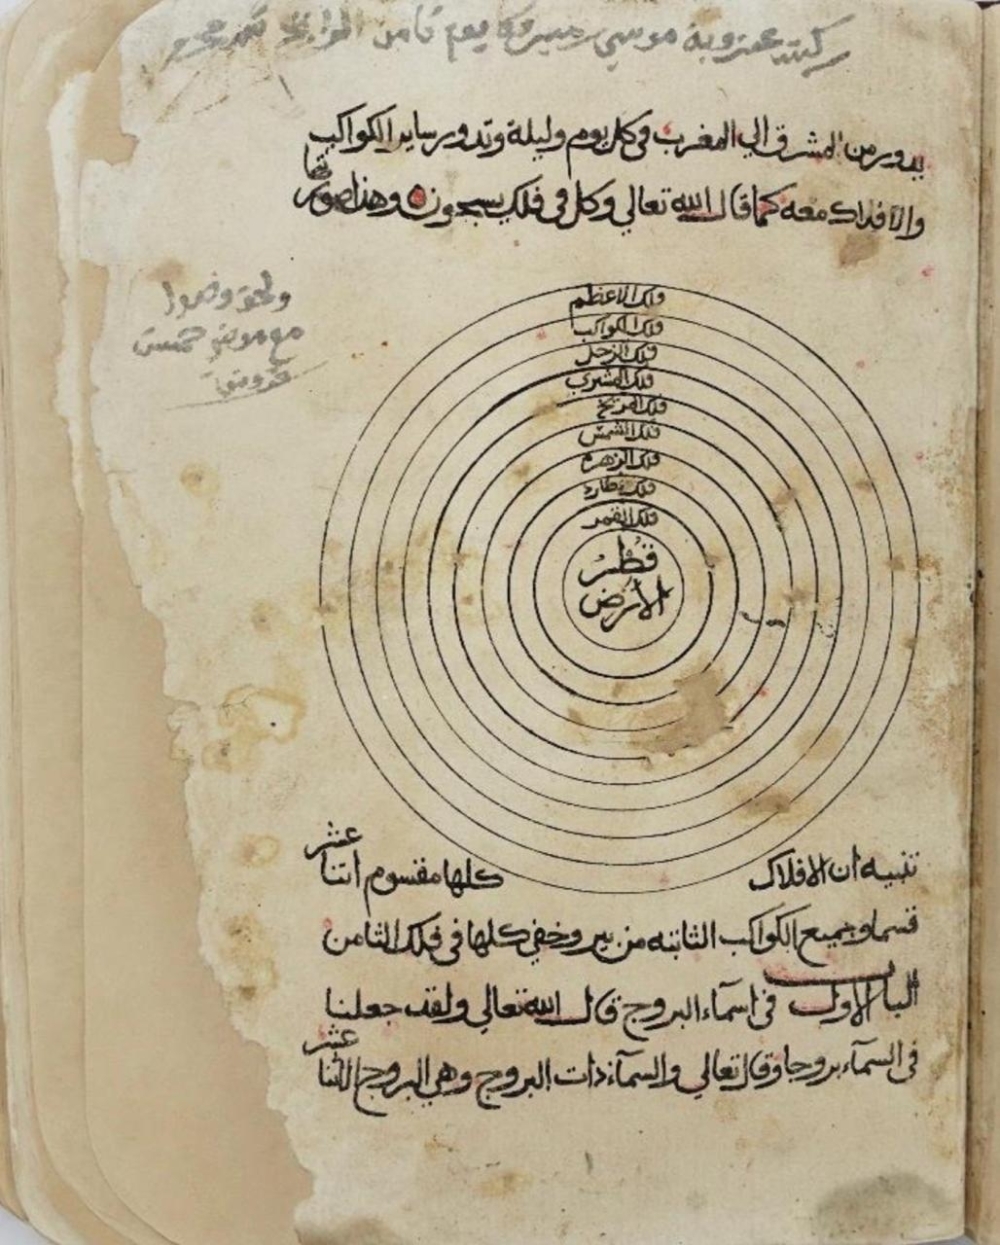 يدور من المشرق الي المغرب في كل يوم وليلة وتدور ساير الكواكب
والافلاك معه كما قال الله تعالي وكل في فلك يسبحون وهذا صورتها
فلك الاعظم
فلك الكواكب
فلك الزحل
فلك المشتري
فلك المريخ
فلك الشمس
فلك الزهره
فلك عطارد
فلك القمر
قطر
الأرض
تنبيه ان الافلاك كلها مقسوم اثنا عشر
قسما وجميع الكواكب الثابته من بير وخفي كلها في فلك الثامن
الباب الاول في اسمآء البروج قال الله تعالي ولقد جعلنا
في السمآء بروجا وقال تعالي والسمآء ذات البروج وهي البروج الاثنا عشر